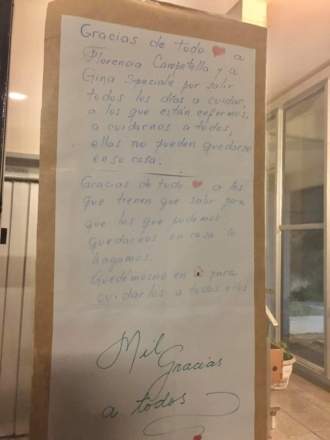 Gracias de todo ❤ a
Florencia Campitella y a
Gina Speziale por salir
todos los días a cuidar,
a los que están enfermos,
a cuidarnos a todos,
ellas no pueden quedarse
en su casa.
Gracias de todo ❤ a los
que tienen que salir para
que los que podemos
quedarnos en casa lo
hagamos.
Quedémosno en 🏠 para
cuidarlos a todos ellos
Mil
Gracias
a todos